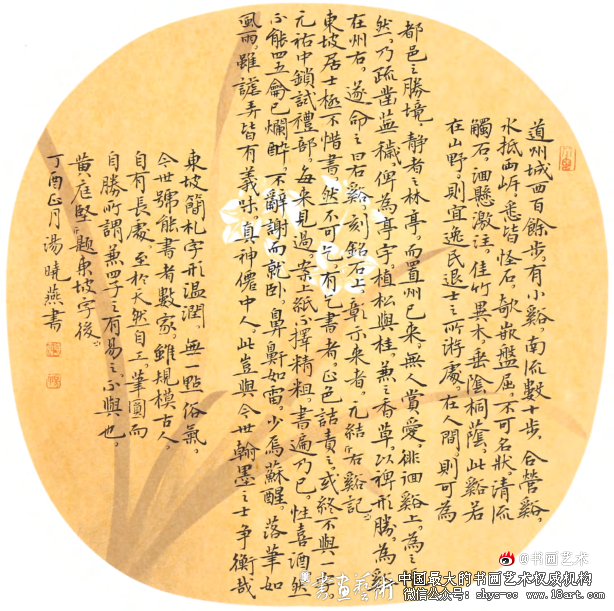 道州城西百餘步。有小谿。南流數十步。合營谿。
水抵兩岸。悉皆怪石。欹嵌盤屈。不可名狀。清流
觸石。洄懸激注。佳竹異木。垂陰桐蔭。此谿若
在山野。則宜逸民退士之所游處。在人間。則可為
都邑之勝境。靜者之林亭。而置州已來。無人賞愛。徘徊谿上。為之悵
然。乃疏鑿蕪穢。俾為亭宇。植松與桂。兼之香草。以裨形勝。為谿
在州右。遂命之曰右谿。刻銘石上。彰示來者。元結「右谿記」
東坡居士極不惜書。然不可乞。有乞書者。正色詰責之。或終不與一字。
元祐中鎖試禮部。每來見過案上紙不擇精粗。書遍乃已。性喜酒然
不能四五龠已爛醉。不辭謝而就卧。鼻鼾如雷。少焉蘇醒。落筆如
風雨。雖謔弄皆有義味。真神僊中人。此豈與今世翰墨之士爭衡哉
東坡簡札字形溫潤。無一點俗氣。
今世號能書者數家。雖規模古人。
自有長處。至於天然自工。筆圓而
自勝所謂兼四子之有易之不與也。
黃庭堅「題東坡字後」
丁酉正月湯曉燕書
@书画艺术
書画藝術
中国最大的书画艺术权威机构
微信公众号: shys-cc www.18art.com